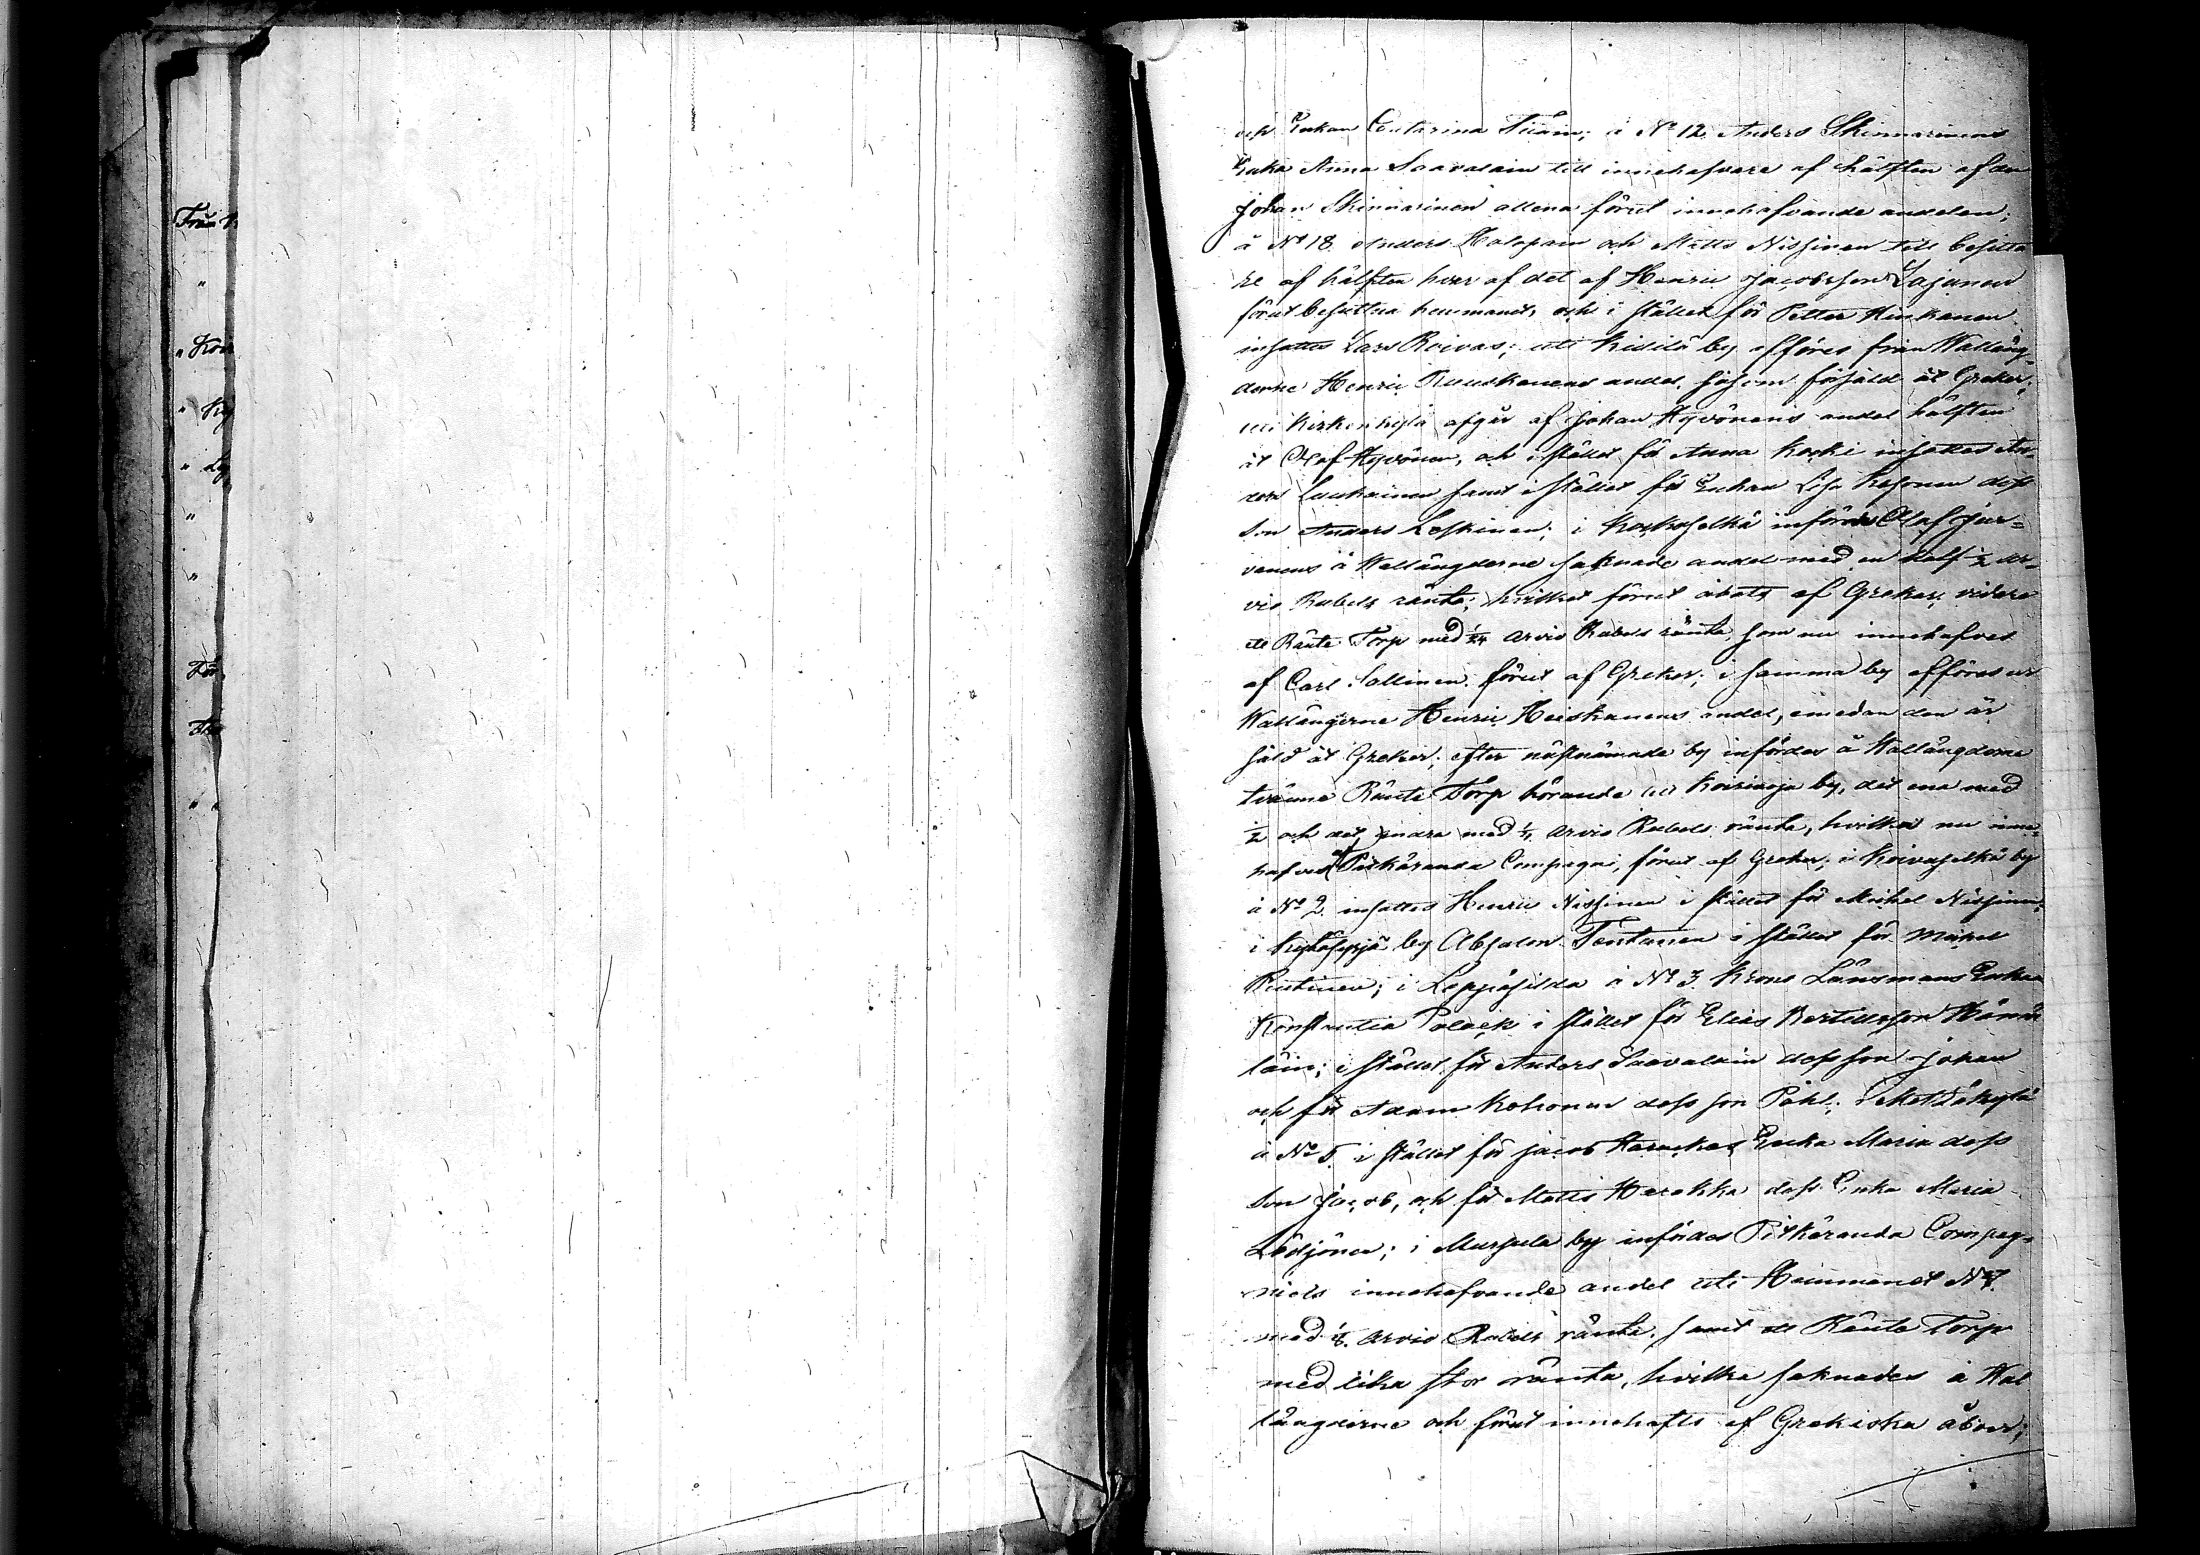 Från
"
" Koir
" Kÿ
" Le
"
"
För
"
och Enkan Contarina Tiiain; å No 12 Anders Skinnarinens
Enka Anna Saavalain till innehafvare af hälften af den
Johan Skinnarinen allena förut innehafvande andelen;
å No 18 Anders Holopain och Matts Nissinen till besitta
re af hälften hvar af det af Henric Jacobsson Lajunen
förut besuttna hemmanet, och i stället för Petter Kinkanen
insattes Lars Roivas; uti Kidilä by afföres från Walläng-
derne Henric Ruuskanens andel såsom försåld åt Greker;
uti Kirkonkylä afgår af Johan Hyvönens andel hälften
åt Olof Hyvönen, och i stället för Anna Koski insattes An-
ders Luukainen samt i stället för Enkan Lisa Kosonen dess
Son Anders Leskinen; i Koskoselkä infördes Olof Jär-
venens å Wallängderne saknade andel med en half 1/2 ar-
vio Rubels ränta; hvilket förut åbots af Greker, vidare
ett Ränte Torp med 1/24 arvio Rubels ränta som nu innehafves
af Carl Sallinen förut af Greker; i samma by afföres ur
Wallängderne Henric Heiskanens andel, emedan den är
såld åt Greker; efter näst nämnde by infördes å Wallängderne
tvänne Ränte Torp hörande till Koirinoja by, det ena med
1/2 och det andra med 1/4 arvio Rubels ränta, hvilka nu inne-
hafves af Pitkäranda Compagni, förut af Greker; i Koivuselkä by
å No 2 insattes Henric Nissinen i stället för Michel Nissinen;
i Kyläsyrjä by Absalon Tentunen i stället för Michel
Rintinen; i Leppäsilda å No 3 Krono Länsmans Enkan
Konstantia Polack i stället för Elias Bertillsson Hämä
läin; i stället för Anders Saavalain dess son Johan
och för Adam Kohonen dess son Påhl; i Metsäkylä
å No 5 i stället för Jacob Harackas Enka Maria dess
Son Jacob, och för Matts Harakka dess Enka Maria
Lödjönen; i Mursula by infördes Pitkäranda Compag-
niets innehafvande andel uti Hemmanet No 7
med 1/8 arvio Rubels ränta, samt ett Ränte Torp
med lika stor ränta, hvilka saknades å Wal
längderne och förut innehafts af Grekiska åboer;